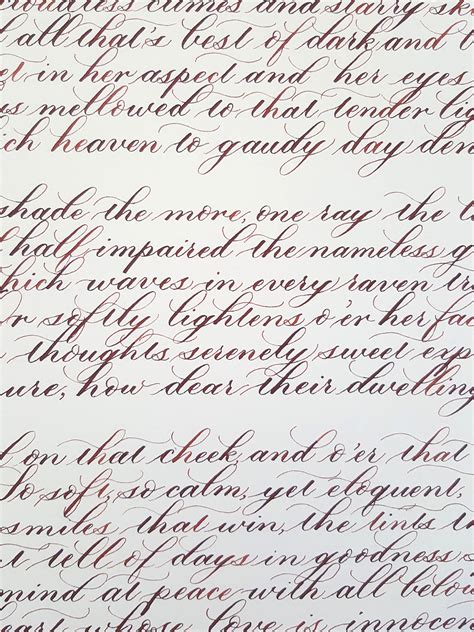 oudless climes and starry ski
all that's best of dark and b
et in her aspect and her eyes
us mellowed to that tender lig
ich heaven to gaudy day den
shade the more, one ray the l
half impaired the nameless g
hich waves in every raven tr
r softly lightens o'er her fac
thoughts serenely sweet exp
ure, how dear their dwelling
on that cheek and o'er that
So soft, so calm, yet eloquent,
smiles that win, the tints t
t tell of days in goodness s
mind at peace with all below
eart whose love is innocen